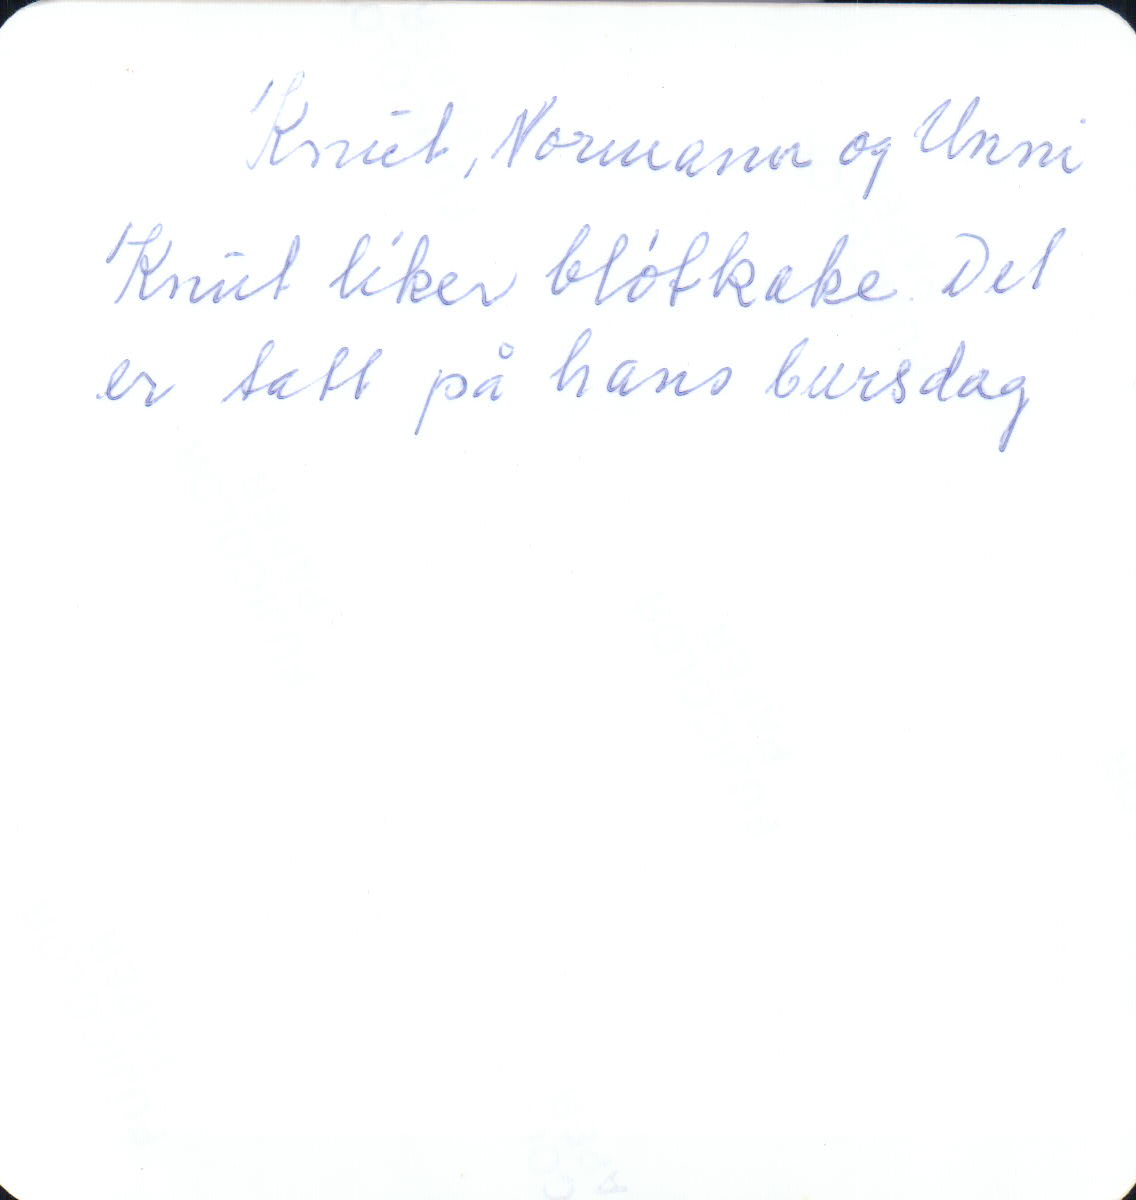 Knut, Normann og Unni
Knut liker bløtkake. Det
er tatt på hans bursdag